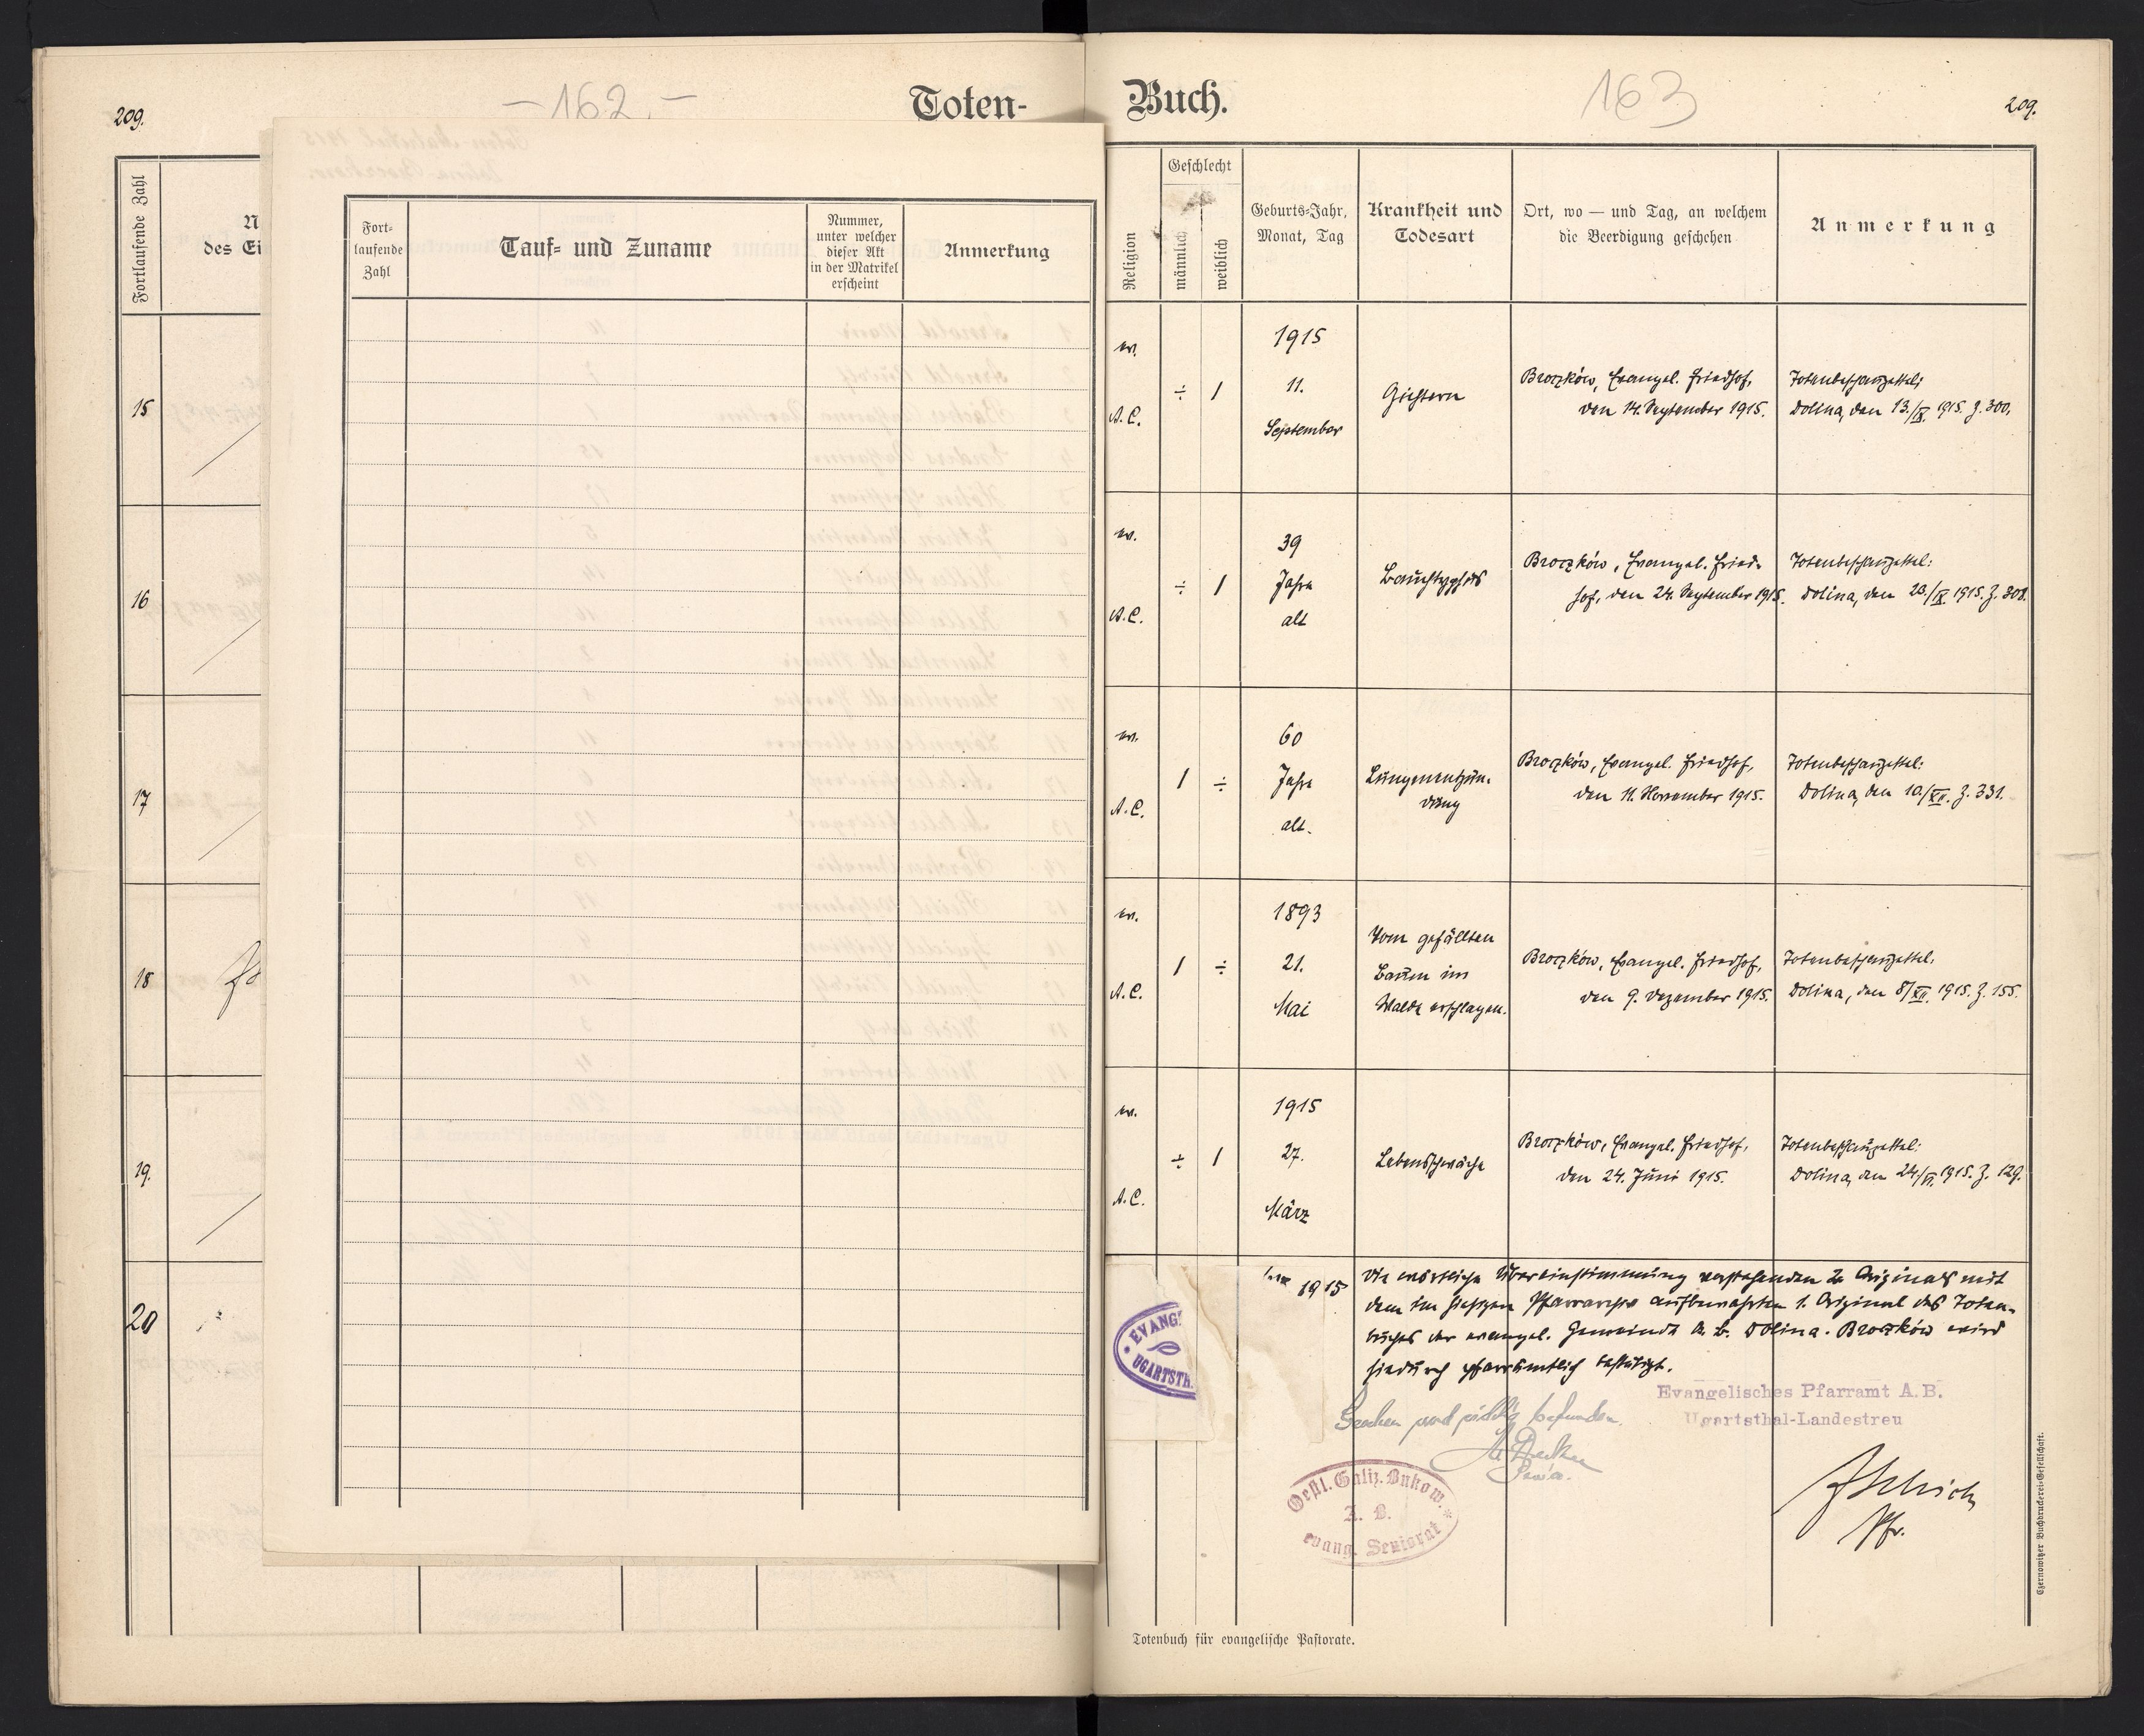 209.
- 162. -
Toten-
Buch.
163
209.
Fortlaufende Zahl
N
des Ei
Fort-
laufende
Zahl
Tauf- und Zuname
Nummer,
unter welcher
dieser Akt
in der Matrikel
erscheint
Anmerkung
Religion
Geschlecht
männlich
weiblich
Geburts-Jahr,
Monat, Tag
Krankheit und
Todesart
Ort, wo — und Tag, an welchem
die Beerdigung geschehen
Anmerkung
15
ev.
A. C.
÷
1
1915
11.
September
Gichtern
Broczków, Evangel. Friedhof,
den 14. September 1915.
Totenbeschauzettel:
Dolina, den 13./IX. 1915. Z. 300.
16
ev.
A. C.
÷
1
39
Jahre
alt
Bauchtyphus
Broczków, Evangel. Fried-
hof, den 24. September 1915.
Totenbeschauzettel:
Dolina, den 23./IX. 1915. Z. 308.
17
ev.
A. C.
1
÷
60
Jahre
alt.
Lungenentzün-
dung
Broczków, Evangel. Friedhof,
den 11. November 1915.
Totenbeschauzettel:
Dolina, den 10./XII. Z. 331.
18
ev.
A. C.
1
÷
1893
21.
Mai
Vom gefällten
Baum im
Walde erschlagen.
Broczków, Evangel. Friedhof,
den 9. Dezember 1915.
Totenbeschauzettel:
Dolina, den 8/XII. 1915. Z. 155.
19.
ev.
A. C.
÷
1
1915
27.
März
Lebensschwäche
Broczków, Evangel. Friedhof,
den 24. Juni 1915.
Totenbeschauzettel:
Dolina, den 24./VI. 1915. Z. 129.
20
1915
Die wörtliche Übereinstimmung vorstehenden 2. Originals mit
dem im hiesigen Pfarrarchiv aufbewahrten 1. Original des Toten-
buches der evangel. Gemeinde A. B. Dolina-Broczków wird
hiedurch pfarrämtlich bestätigt.
EVANG.
UGARTSTH.
Evangelisches Pfarramt A.B.
Ugartsthal-Landestreu
Gesehen und richtig befunden.
Senior.
Oestl. Galiz. Bukow.
A. B.
evang. Seniorat
Pfr.
Totenbuch für evangelische Pastorate.
Czernowitzer Buchdruckerei-Gesellschaft.